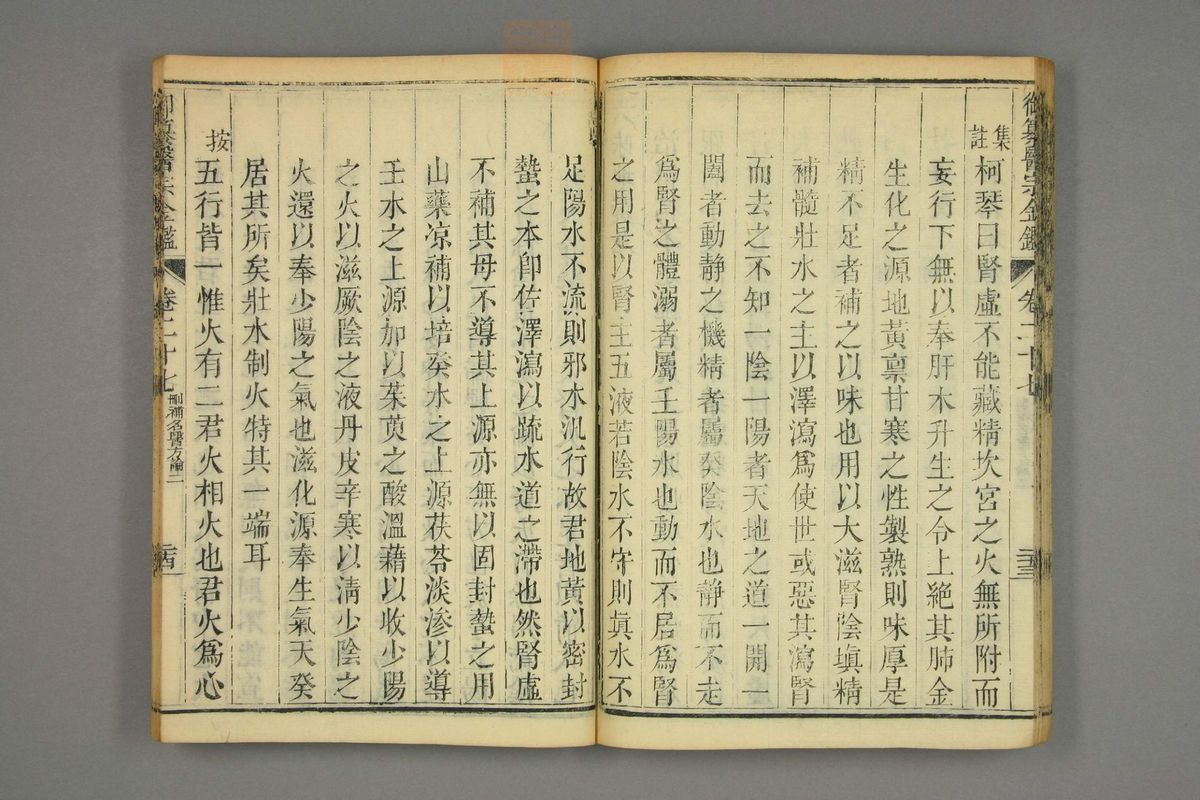 御纂醫宗金鑑 卷二十七 二十三
集註
柯琴曰腎虛不能藏精坎宮之火無所附而
妄行下無以奉肝木升生之令上絶其肺金
生化之源地黃禀甘寒之性製熟則味厚是
精不足者補之以味也用以大滋腎陰塡精
補髓壯水之主以澤瀉爲使世或惡其瀉腎
而去之不知一陰一陽者天地之道一開一
闔者動靜之機精者屬癸陰水也靜而不走
爲腎之體溺者屬壬陽水也動而不居爲腎
之用是以腎主五液若陰水不守則眞水不
足陽水不流則邪水汎行故君地黃以密封
蟄之本卽佐澤瀉以疏水道之滯也然腎虛
不補其母不導其上源亦無以固封蟄之用
山藥凉補以培癸水之上源茯苓淡滲以導
壬水之上源加以茱萸之酸溫藉以收少陽
之火以滋厥陰之液丹皮辛寒以淸少陰之
火還以奉少陽之氣也滋化源奉生氣天癸
居其所矣壯水制火特其一端耳
按
五行皆一惟火有二君火相火也君火爲心
御纂醫宗金鑑 卷二十七 刪補名醫方論二 二十四